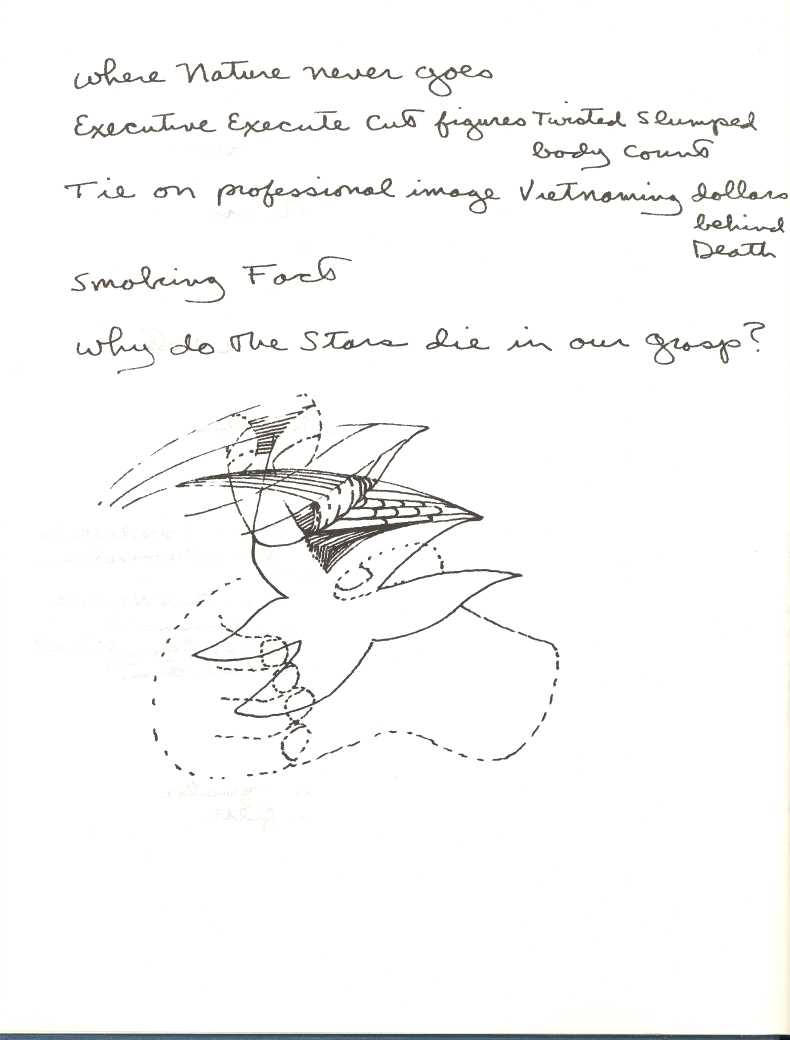 where Nature never goes
Executive Execute Cut figures Twisted Slumped
body count
Tie on professional image Vietnaming dollars
behind
Death
Smoking Fact
Why do the Stars die in our grasp?